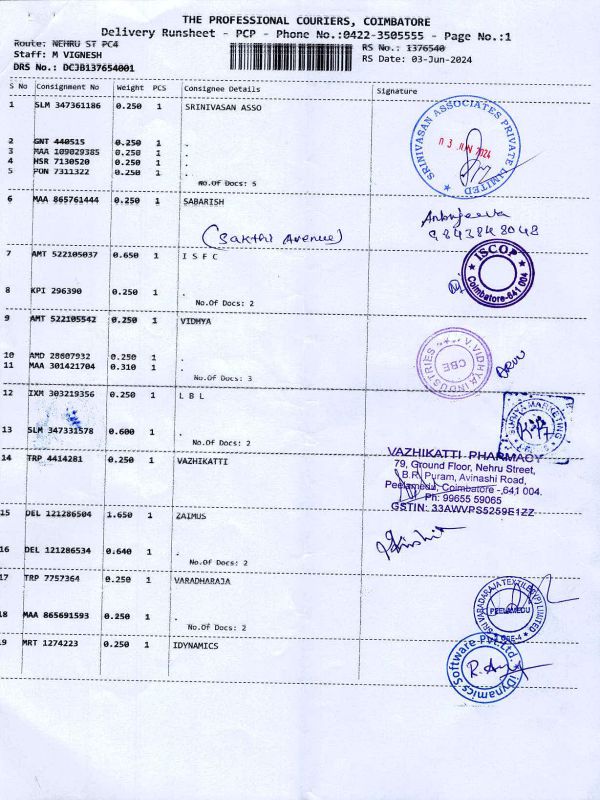 THE PROFESSIONAL COURIERS, COIMBATORE
Delivery Runsheet - PCP - Phone No.:0422-3505555 - Page No.:1
Route: NEHRU ST PC4
RS No.: 1376540
Staff: M VIGNESH
RS Date: 03-Jun-2024
DRS No.: DCJB137654001
S No Consignment No Weight PCS Consignee Details Signature
1 SLM 347361186 0.250 1 SRINIVASAN ASSO
SRINIVASAN ASSOCIATES PRIVATE LIMITED ★
03 JUN 2024
2 GNT 440515 0.250 1 .
3 MAA 109029385 0.250 1 .
4 HSR 7130520 0.250 1 .
5 PON 7311322 0.250 1 .
No.Of Docs: 5
6 MAA 865761444 0.250 1 SABARISH
(Sakthi Avenue)
7 AMT 522105037 0.650 1 I S F C
★ ISCOP ★ Coimbatore-641 004
8 KPI 296390 0.250 1 .
No.Of Docs: 2
9 AMT 522105542 0.250 1 VIDHYA
V.VIDHYA INDUSTRIES
CBE
10 AMD 28607932 0.250 1 .
11 MAA 301421704 0.310 1 .
No.Of Docs: 3
12 IXM 303219356 0.250 1 L B L
MARKETING
13 SLM 347331578 0.600 1 .
No.Of Docs: 2
14 TRP 4414281 0.250 1 VAZHIKATTI
VAZHIKATTI PHARMACY
79, Ground Floor, Nehru Street,
B.R. Puram, Avinashi Road,
Peelamedu, Coimbatore - 641 004.
Ph: 99655 59065
GSTIN: 33AWVPS5259E1ZZ
15 DEL 121286504 1.650 1 ZAIMUS
16 DEL 121286534 0.640 1 .
No.Of Docs: 2
17 TRP 7757364 0.250 1 VARADHARAJA
SRI VARADARAJA TEXTILES (P) LIMITED
PEELAMEDU
CBE-4
18 MAA 865691593 0.250 1 .
No.Of Docs: 2
19 MRT 1274223 0.250 1 IDYNAMICS
iDynamics Software Pvt.Ltd.